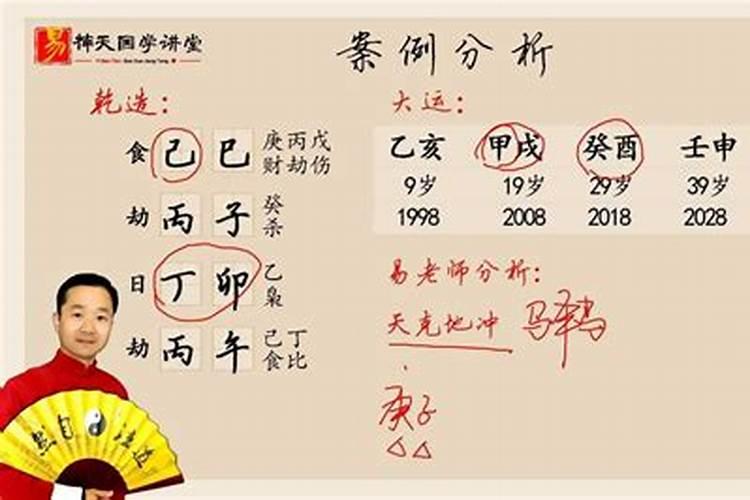 易 天国学讲堂
案例分析
乾造：
食 己 巳 庚丙戊
财劫伤
劫 丙 子 癸
杀
日 丁 卯 乙
枭
劫 丙 午 己丁
食比
大运：
乙亥 甲戌 癸酉 壬申
9岁 19岁 29岁 39岁
1998 2008 2018 2028
易老师分析：
天克地冲
庚子
△△
然自法道